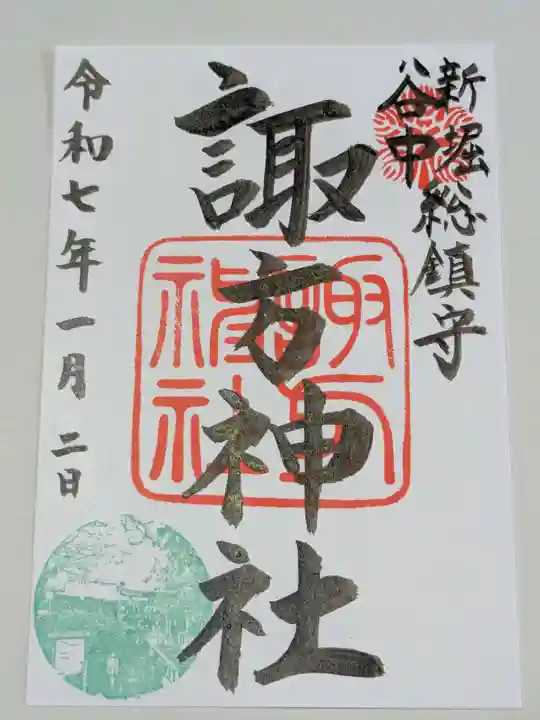 新堀総鎮守
谷中
諏方神社
諏方
神社
令和七年一月二日